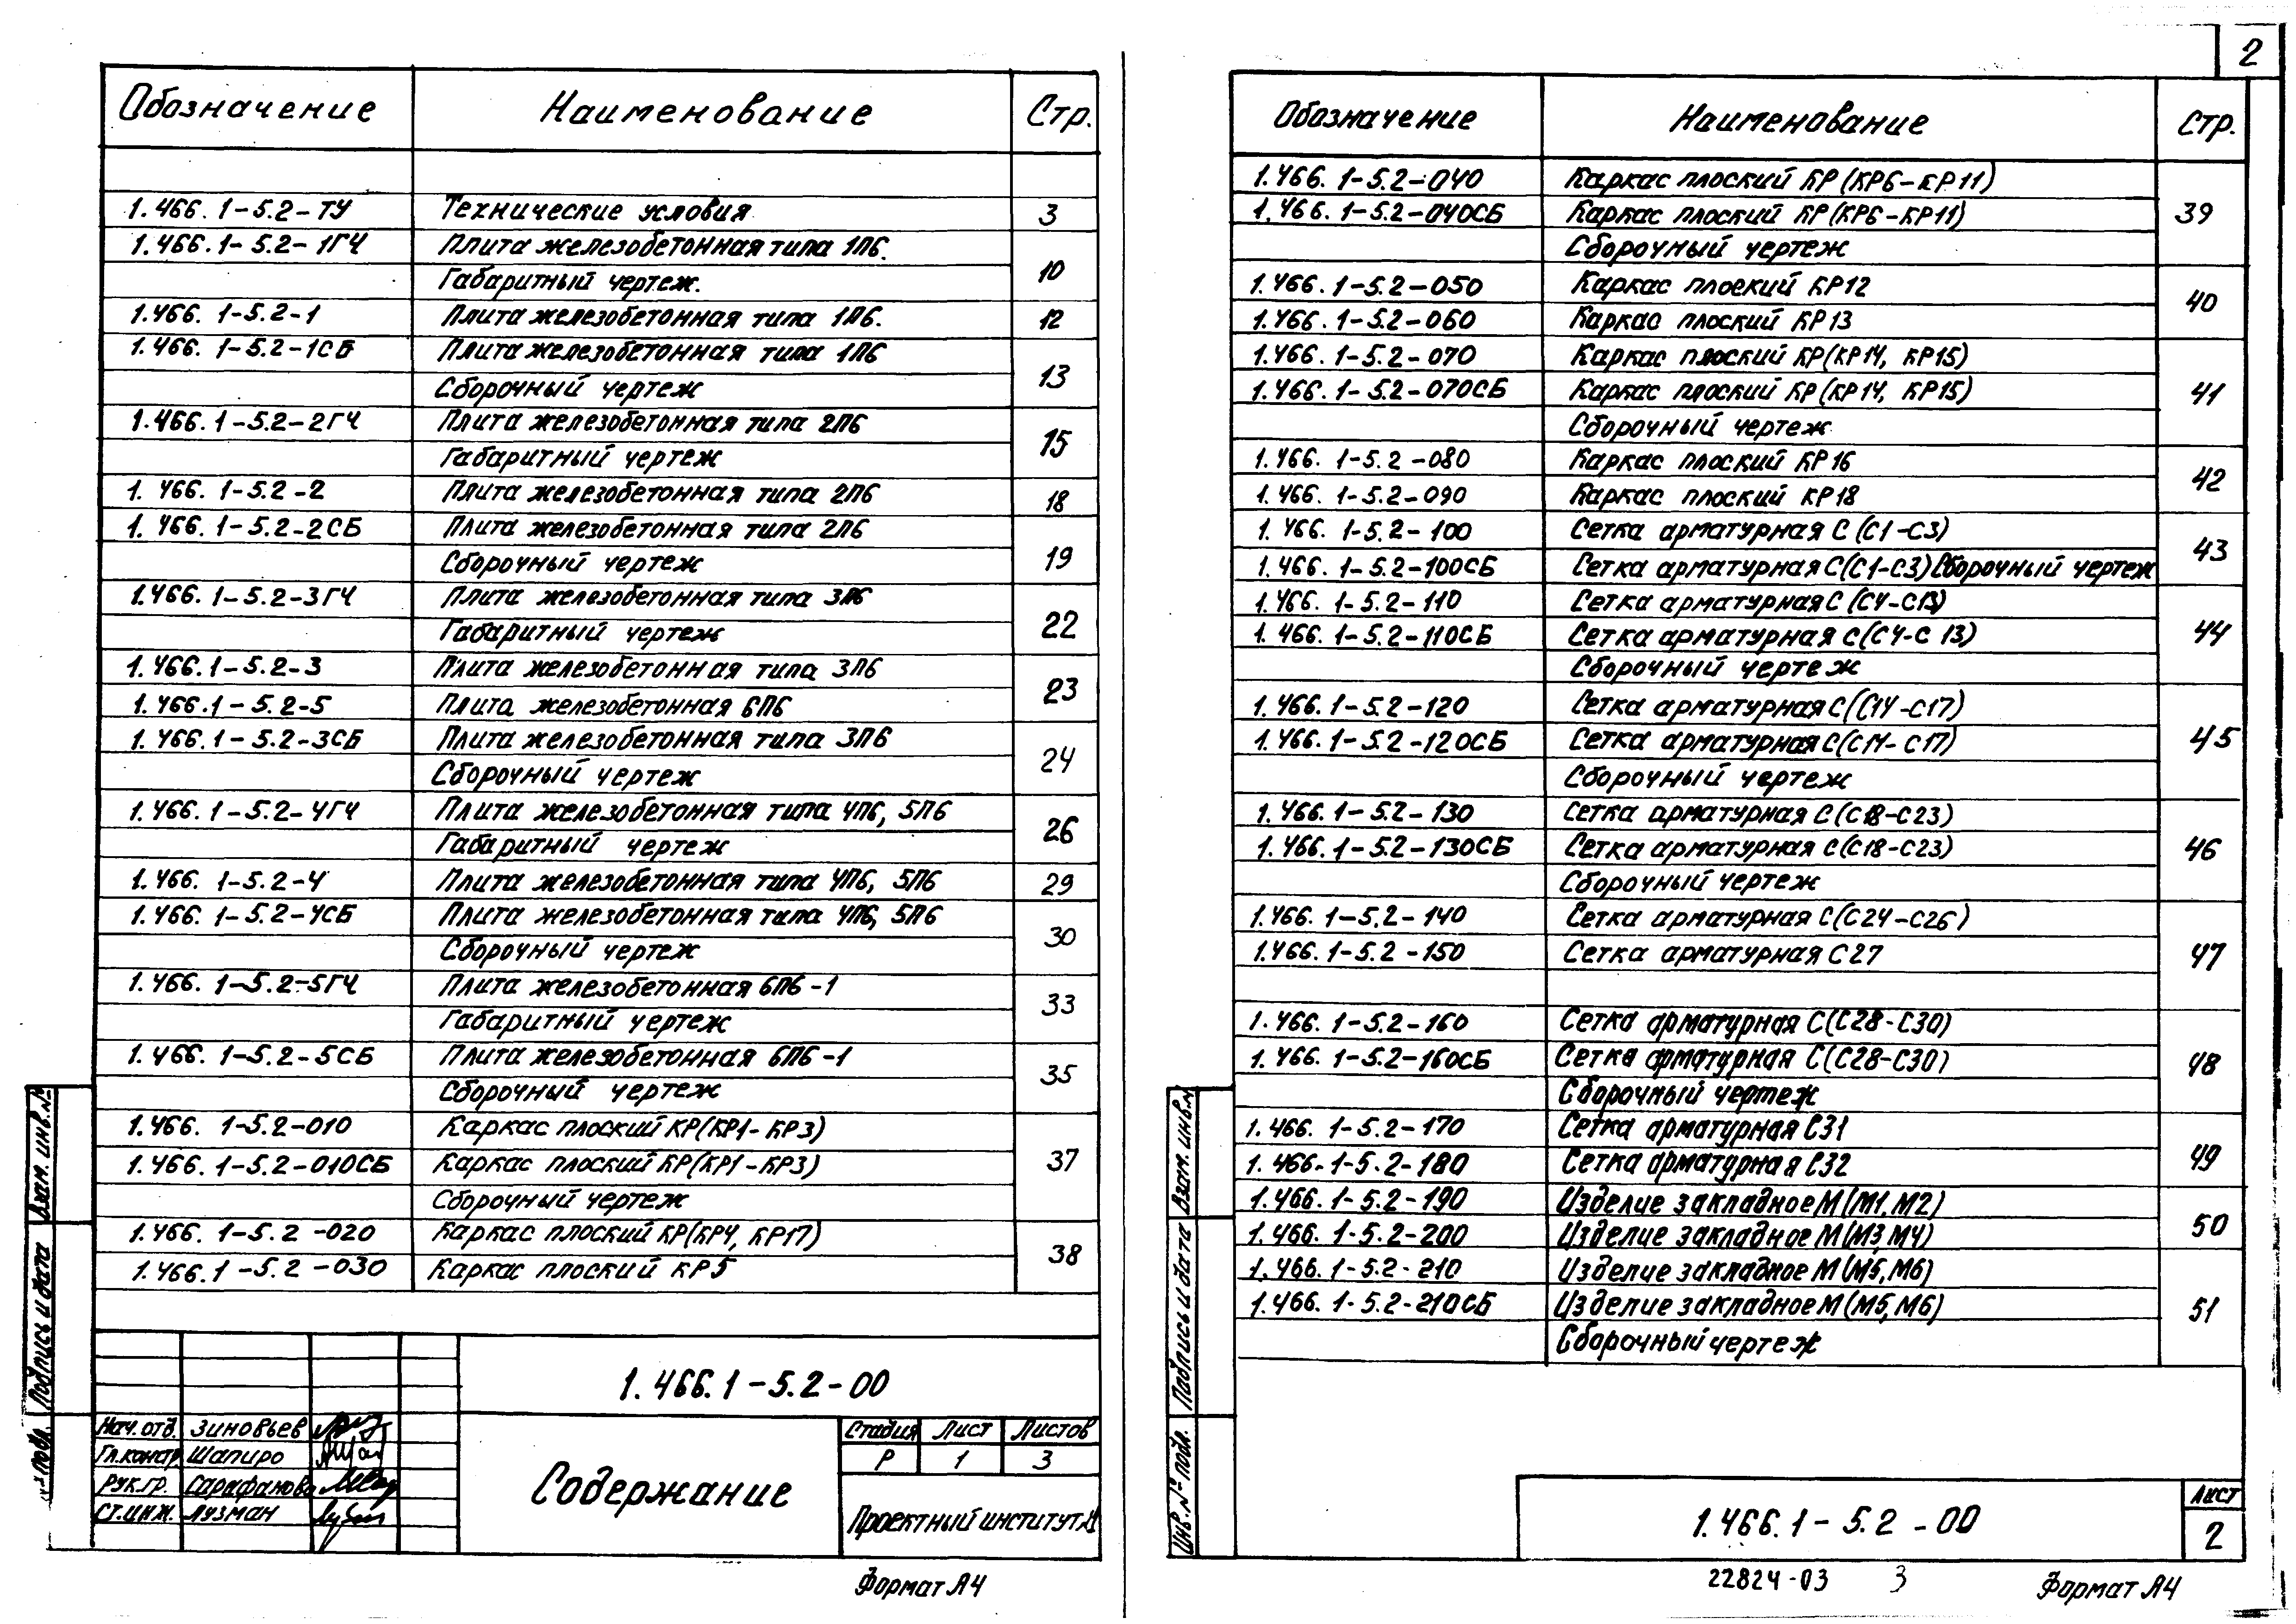 Обозначение Наименование Стр.
1.466.1-5.2-ТУ Технические условия 3
1.466.1-5.2-1ГЧ Плита железобетонная типа 1П6.
Габаритный чертеж. 10
1.466.1-5.2-1 Плита железобетонная типа 1П6. 12
1.466.1-5.2-1СБ Плита железобетонная типа 1П6
Сборочный чертеж 13
1.466.1-5.2-2ГЧ Плита железобетонная типа 2П6
Габаритный чертеж 15
1.466.1-5.2-2 Плита железобетонная типа 2П6 18
1.466.1-5.2-2СБ Плита железобетонная типа 2П6
Сборочный чертеж 19
1.466.1-5.2-3ГЧ Плита железобетонная типа 3П6
Габаритный чертеж 22
1.466.1-5.2-3 Плита железобетонная типа 3П6
23
1.466.1-5.2-5 Плита железобетонная 6П6
1.466.1-5.2-3СБ Плита железобетонная типа 3П6
Сборочный чертеж 24
1.466.1-5.2-4ГЧ Плита железобетонная типа 4П6, 5П6
Габаритный чертеж 26
1.466.1-5.2-4 Плита железобетонная типа 4П6, 5П6 29
1.466.1-5.2-4СБ Плита железобетонная типа 4П6, 5П6
Сборочный чертеж 30
1.466.1-5.2-5ГЧ Плита железобетонная 6П6-1
Габаритный чертеж 33
1.466.1-5.2-5СБ Плита железобетонная 6П6-1
Сборочный чертеж 35
1.466.1-5.2-010 Каркас плоский КР(КР1-КР3)
1.466.1-5.2-010СБ Каркас плоский КР(КР1-КР3) 37
Сборочный чертеж
1.466.1-5.2-020 Каркас плоский КР(КР4, КР17)
38
1.466.1-5.2-030 Каркас плоский КР5
1.466.1-5.2-00
Нач.отд. Зиновьев
Гл.констр Шапиро
Рук.гр. Сарафанова
Ст.инж. Лузман
Содержание
Стадия Лист Листов
Р 1 3
Проектный институт №1
Формат А4
Взам. инв.№
Подпись и дата
№ подл.
2
Обозначение Наименование Стр.
1.466.1-5.2-040 Каркас плоский КР(КР6-КР11)
1.466.1-5.2-040СБ Каркас плоский КР(КР6-КР11) 39
Сборочный чертеж
1.466.1-5.2-050 Каркас плоский КР12
40
1.466.1-5.2-060 Каркас плоский КР13
1.466.1-5.2-070 Каркас плоский КР(КР14, КР15)
1.466.1-5.2-070СБ Каркас плоский КР(КР14, КР15) 41
Сборочный чертеж
1.466.1-5.2-080 Каркас плоский КР16
42
1.466.1-5.2-090 Каркас плоский КР18
1.466.1-5.2-100 Сетка арматурная С(С1-С3)
43
1.466.1-5.2-100СБ Сетка арматурная С(С1-С3) Сборочный чертеж
1.466.1-5.2-110 Сетка арматурная С(С4-С13)
1.466.1-5.2-110СБ Сетка арматурная С(С4-С13) 44
Сборочный чертеж
1.466.1-5.2-120 Сетка арматурная С(С14-С17)
1.466.1-5.2-120СБ Сетка арматурная С(С14-С17) 45
Сборочный чертеж
1.466.1-5.2-130 Сетка арматурная С(С18-С23)
1.466.1-5.2-130СБ Сетка арматурная С(С18-С23) 46
Сборочный чертеж
1.466.1-5.2-140 Сетка арматурная С(С24-С26)
1.466.1-5.2-150 Сетка арматурная С27 47
1.466.1-5.2-160 Сетка арматурная С(С28-С30)
1.466.1-5.2-160СБ Сетка арматурная С(С28-С30) 48
Сборочный чертеж
1.466.1-5.2-170 Сетка арматурная С31
49
1.466.1-5.2-180 Сетка арматурная С32
1.466.1-5.2-190 Изделие закладное М(М1,М2)
50
1.466.1-5.2-200 Изделие закладное М(М3,М4)
1.466.1-5.2-210 Изделие закладное М(М5,М6)
1.466.1-5.2-210СБ Изделие закладное М(М5,М6) 51
Сборочный чертеж
Взам. инв.№
Подпись и дата
Инв.№ подл.
1.466.1-5.2-00
Лист
2
22824-03 3
Формат А4